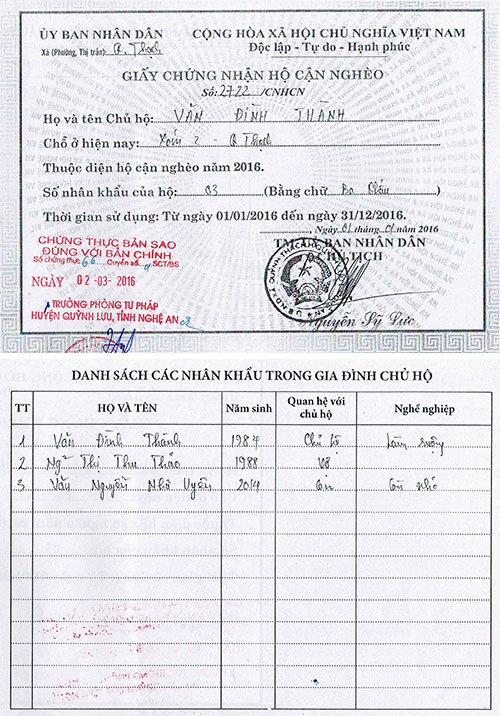 ỦY BAN NHÂN DÂN
Xã (Phường, Thị trấn) Q. Thạch
CỘNG HÒA XÃ HỘI CHỦ NGHĨA VIỆT NAM
Độc lập - Tự do - Hạnh phúc
GIẤY CHỨNG NHẬN HỘ CẬN NGHÈO
Số: 2722 /CNHCN
Họ và tên Chủ hộ: VĂN ĐÌNH THÀNH
Chỗ ở hiện nay: Xóm 2 - Q Thạch
Thuộc diện hộ cận nghèo năm 2016.
Số nhân khẩu của hộ: 03 (Bằng chữ Ba khẩu)
Thời gian sử dụng: Từ ngày 01/01/2016 đến ngày 31/12/2016.
Ngày 01 tháng 01 năm 2016
TM. ỦY BAN NHÂN DÂN
CHỦ TỊCH
CHỨNG THỰC BẢN SAO
ĐÚNG VỚI BẢN CHÍNH
Số chứng thực 66 Quyển số SCT/BS
NGÀY 02 -03- 2016
TRƯỞNG PHÒNG TƯ PHÁP
HUYỆN QUỲNH LƯU, TỈNH NGHỆ AN
Nguyễn Sỹ Lực
DANH SÁCH CÁC NHÂN KHẨU TRONG GIA ĐÌNH CHỦ HỘ
TT HỌ VÀ TÊN Năm sinh Quan hệ với chủ hộ Nghề nghiệp
1 Văn Đình Thành 1987 Chủ hộ Làm ruộng
2 Ng~ Thị Thu Thảo 1988 Vợ
3 Văn Nguyễn Nhã Uyên 2014 Con Còn nhỏ